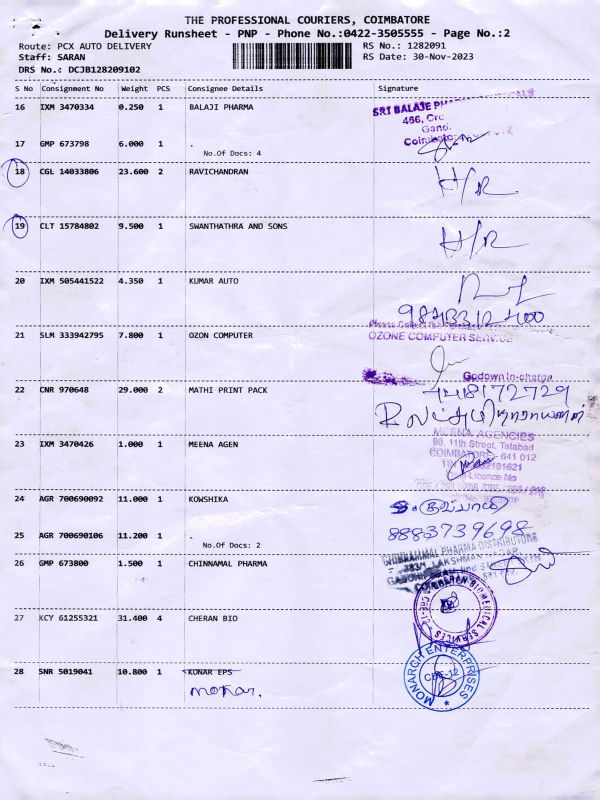 THE PROFESSIONAL COURIERS, COIMBATORE
Delivery Runsheet - PNP - Phone No.:0422-3505555 - Page No.:2
Route: PCX AUTO DELIVERY RS No.: 1282091
Staff: SARAN RS Date: 30-Nov-2023
DRS No.: DCJB128209102
S No Consignment No Weight PCS Consignee Details Signature
16 IXM 3470334 0.250 1 BALAJI PHARMA
SRI BALAJE
466,
17 GMP 673798 6.000 1 .
No.Of Docs: 4
18 CGL 14033806 23.600 2 RAVICHANDRAN H/R
19 CLT 15784802 9.500 1 SWANTHATHRA AND SONS H/R
20 IXM 505441522 4.350 1 KUMAR AUTO
21 SLM 333942795 7.800 1 OZON COMPUTER
OZONE COMPUTER SERVICE
Godown In-charge
22 CNR 970648 29.000 2 MATHI PRINT PACK
23 IXM 3470426 1.000 1 MEENA AGEN
MEENA AGENCIES
96, 11th Street, Tatabad
COIMBATORE - 641 012
24 AGR 700690092 11.000 1 KOWSHIKA
8883739698
25 AGR 700690106 11.200 1 .
No.Of Docs: 2
26 GMP 673800 1.500 1 CHINNAMAL PHARMA
CHINNAMMAL PHARMA DISTRIBUTORS
27 KCY 61255321 31.400 4 CHERAN BIO
CHERAN BIOMEDICAL SERVICES
CBE-12
28 SNR 5019041 10.800 1 KONAR EPS
monar.
MONARCH ENTERPRISES
CBE-12